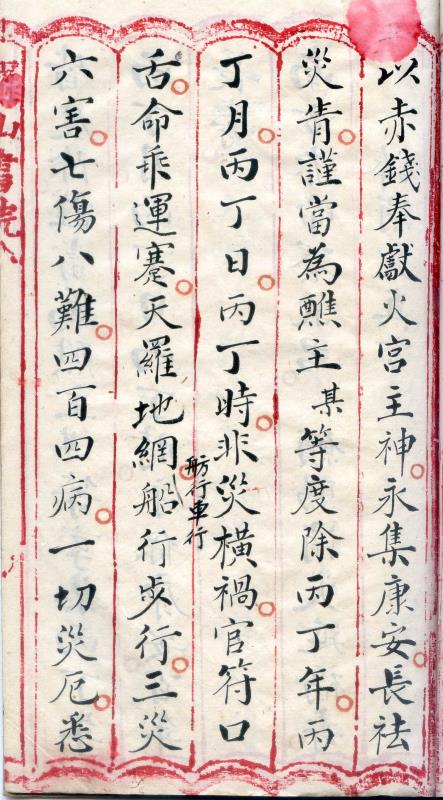 以赤錢奉獻火宮主神永集康安長袪
災眚謹當為醮主某等度除丙丁年丙
丁月丙丁日丙丁時非災橫禍官符口
舌命乖運蹇天羅地網船行步行三災
舫行車行
六害七傷八難四百四病一切災厄悉
山書院